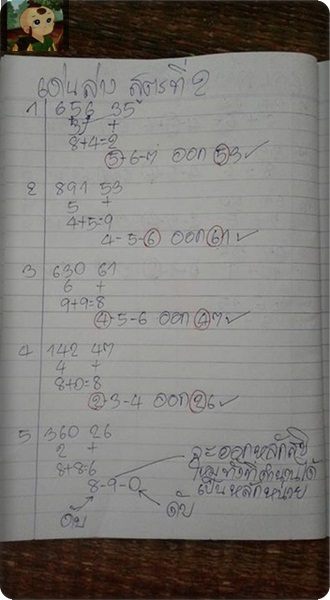 เด่นล่าง สูตรที่ 2
1 656 35
37 +
8+4=2
5-6-7 ออก 53 ✓
2 891 53
5 +
4+5=9
4-5-6 ออก 61 ✓
3 630 61
6 +
9+9=8
4-5-6 ออก 47 ✓
4 142 47
4 +
8+0=8
2-3-4 ออก 26 ✓
5 360 26
2 +
8+8=6
8-9-0
ดับ ดับ
จะออกหลักสิบ
เป็นหลักหน่วย